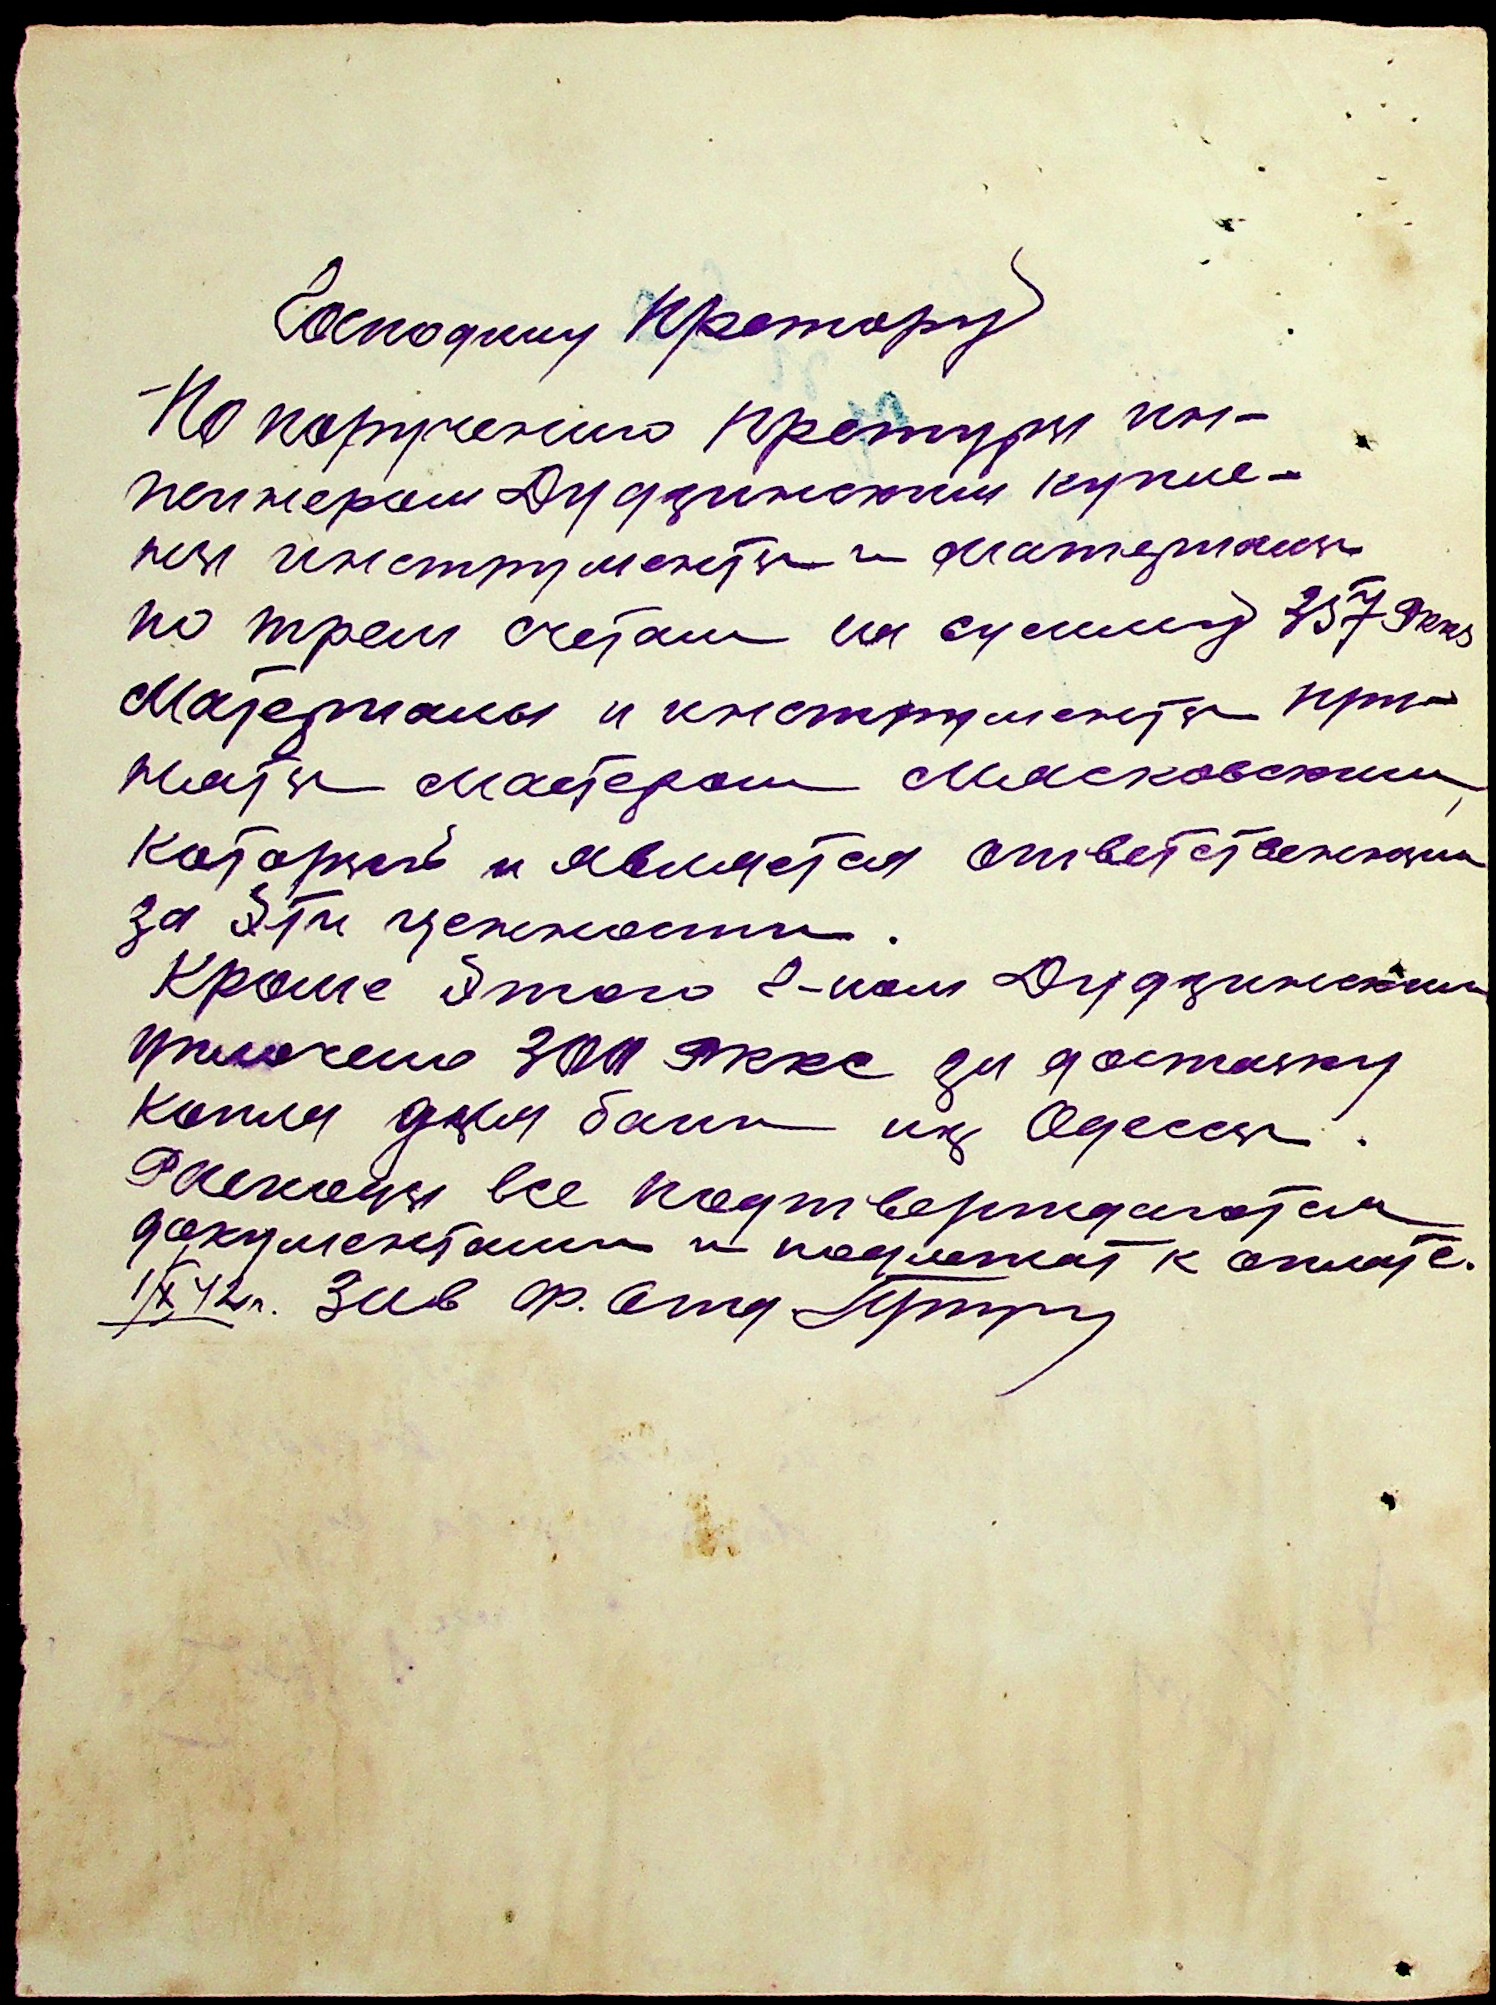 Господину Претору
По поручению претуры ин-
женером Дудзинским купле-
ны инструменты и материалы
по трем счетам на сумму 357 Рккс
Материалы и инструменты при-
няты мастером Мясковским,
который и является ответственным
за эти ценности.
Кроме этого г-ном Дудзинским
уплочено 300 Рккс за доставку
котла для бани из Одессы.
Расходы все подтверждаются
документами и подлежат к оплате.
1/X 42 г. Зав Ф. Отд